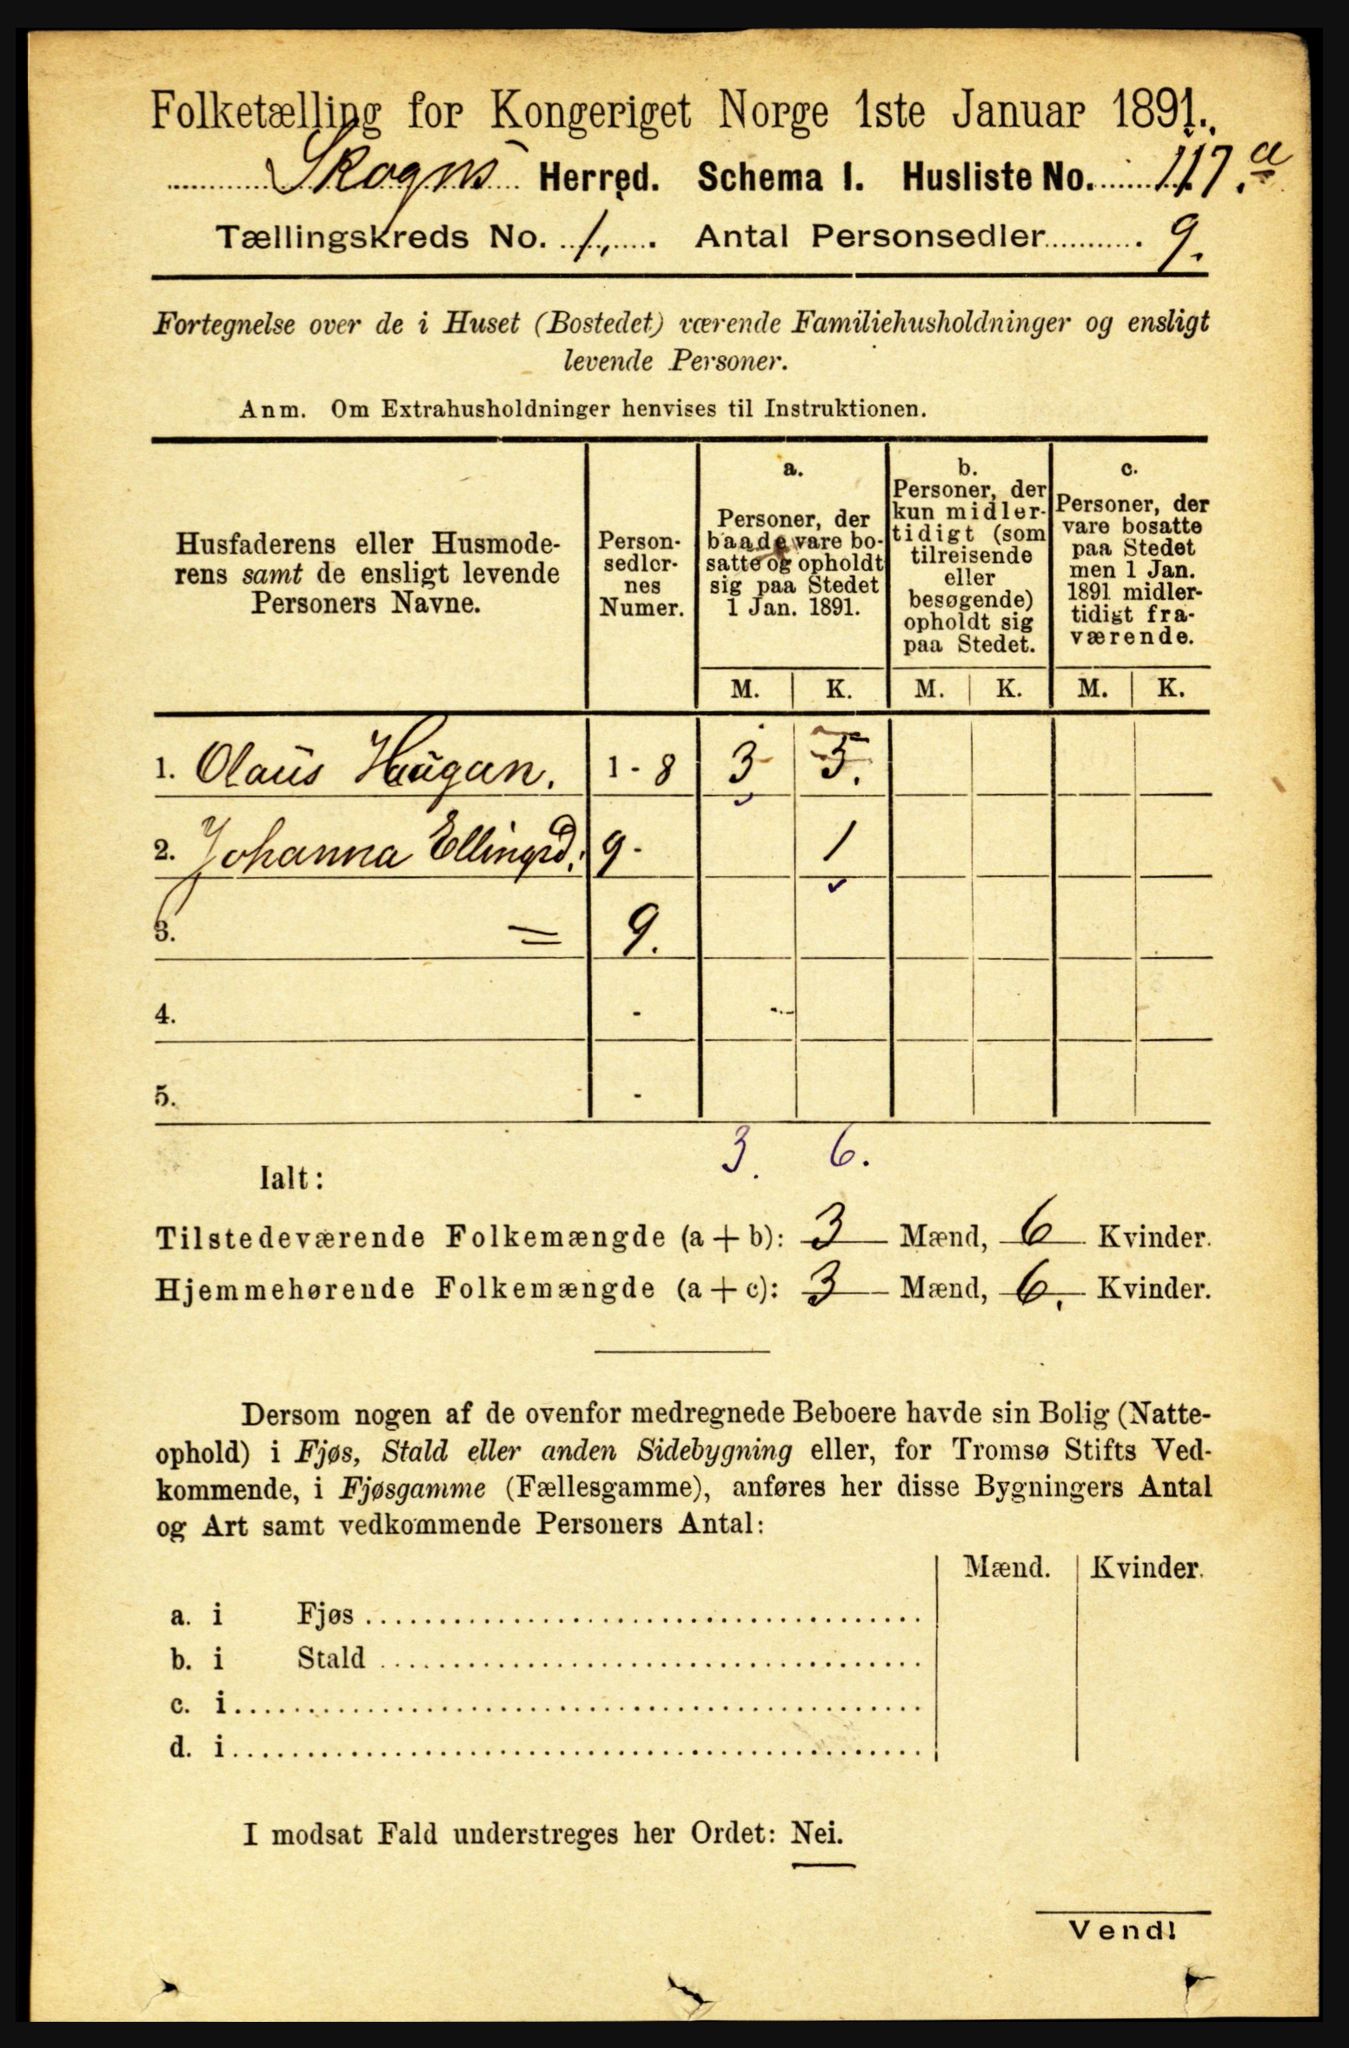 Folketælling for Kongeriget Norge 1ste Januar 1891.
Skogns Herred. Schema I. Husliste No. 117.a
Tællingskreds No. 1. Antal Personsedler 9.
Fortegnelse over de i Huset (Bostedet) værende Familiehusholdninger og ensligt
levende Personer.
Anm. Om Extrahusholdninger henvises til Instruktionen.
Husfaderens eller Husmode-
rens samt de ensligt levende
Personers Navne.
Person-
sedler-
nes
Numer.
a.
Personer, der
baade vare bo-
satte og opholdt
sig paa Stedet
1 Jan. 1891.
b.
Personer, der
kun midler-
tidigt (som
tilreisende
eller
besøgende)
opholdt sig
paa Stedet.
c.
Personer, der
vare bosatte
paa Stedet
men 1 Jan.
1891 midler-
tidigt fra-
værende.
M. K. M. K. M. K.
1. Olaus Haugan. 1 - 8 3 5.
2. Johanna Ellingsd. 9 - 1
3. = 9.
4. -
5. -
3. 6.
Ialt:
Tilstedeværende Folkemængde (a + b): 3 Mænd, 6 Kvinder.
Hjemmehørende Folkemængde (a + c): 3 Mænd, 6. Kvinder.
Dersom nogen af de ovenfor medregnede Beboere havde sin Bolig (Natte-
ophold) i Fjøs, Stald eller anden Sidebygning eller, for Tromsø Stifts Ved-
kommende, i Fjøsgamme (Fællesgamme), anføres her disse Bygningers Antal
og Art samt vedkommende Personers Antal:
Mænd. Kvinder.
a. i Fjøs
b. i Stald
c. i
d. i
I modsat Fald understreges her Ordet: Nei.
Vend!